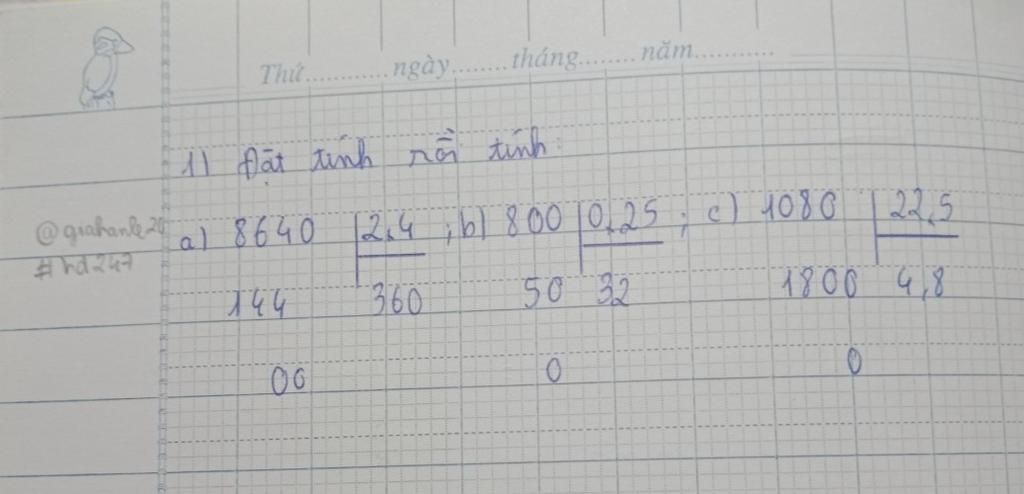 Thứ............ngày........tháng........năm............
1) Đặt tính rồi tính:
a) 8640 2,4 ; b) 800 0,25 ; c) 1080 22,5
@giahanle20
#hd247
144 360 50 32 1800 4,8
00 0 0